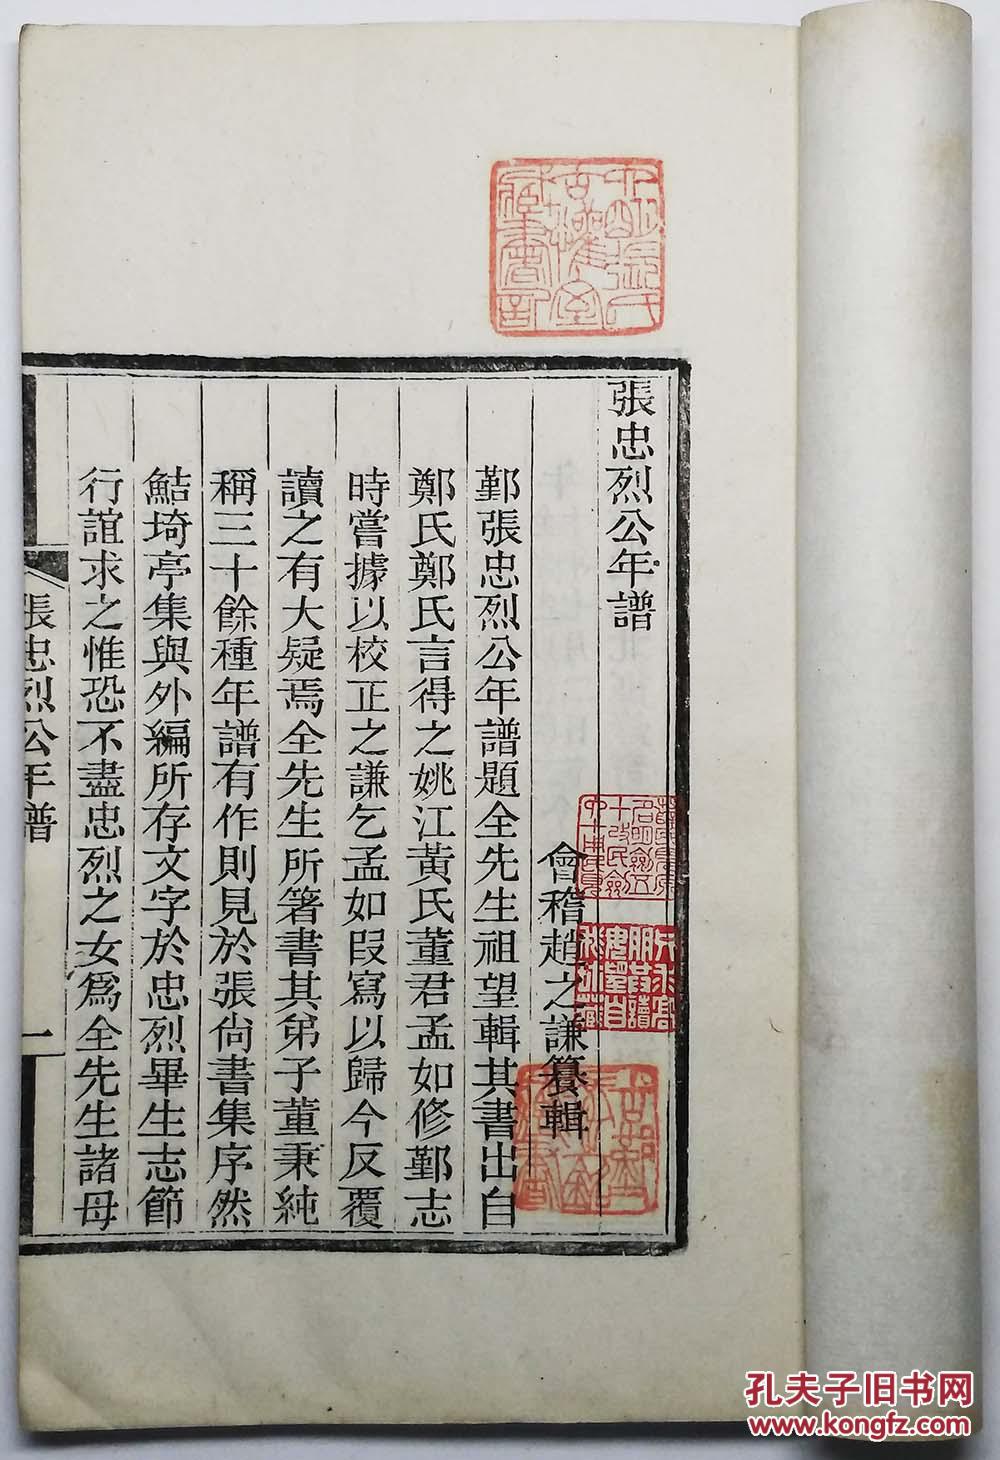 張忠烈公年譜
會稽趙之謙纂輯
鄞張忠烈公年譜題全先生祖望輯其書出自
鄭氏鄭氏言得之姚江黃氏董君孟如修鄞志
時嘗據以校正之謙乞孟如叚寫以歸今反覆
讀之有大疑焉全先生所箸書其弟子董秉純
稱三十餘種年譜有作則見於張尙書集序然
鮚埼亭集與外編所存文字於忠烈畢生志節
行誼求之惟恐不盡忠烈之女爲全先生諸母
張忠烈公年譜
一
孔夫子旧书网
www.kongfz.com